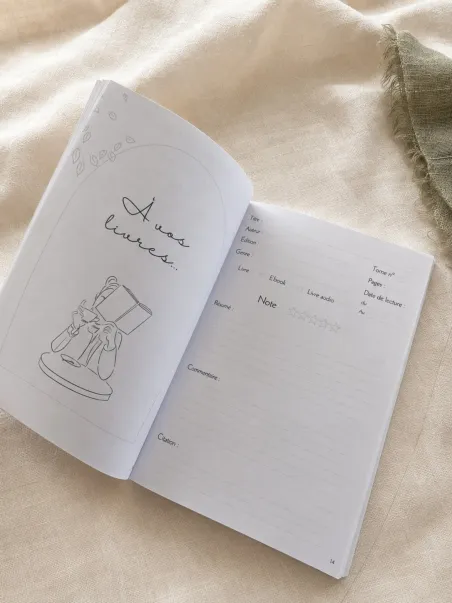 À vos
livres...
Titre :
Auteur :
Édition :
Genre :
Tome n°
Pages :
Livre Ebook Livre audio
Date de lecture :
du
Au
Note
Résumé :
Commentaire :
Citation :
14